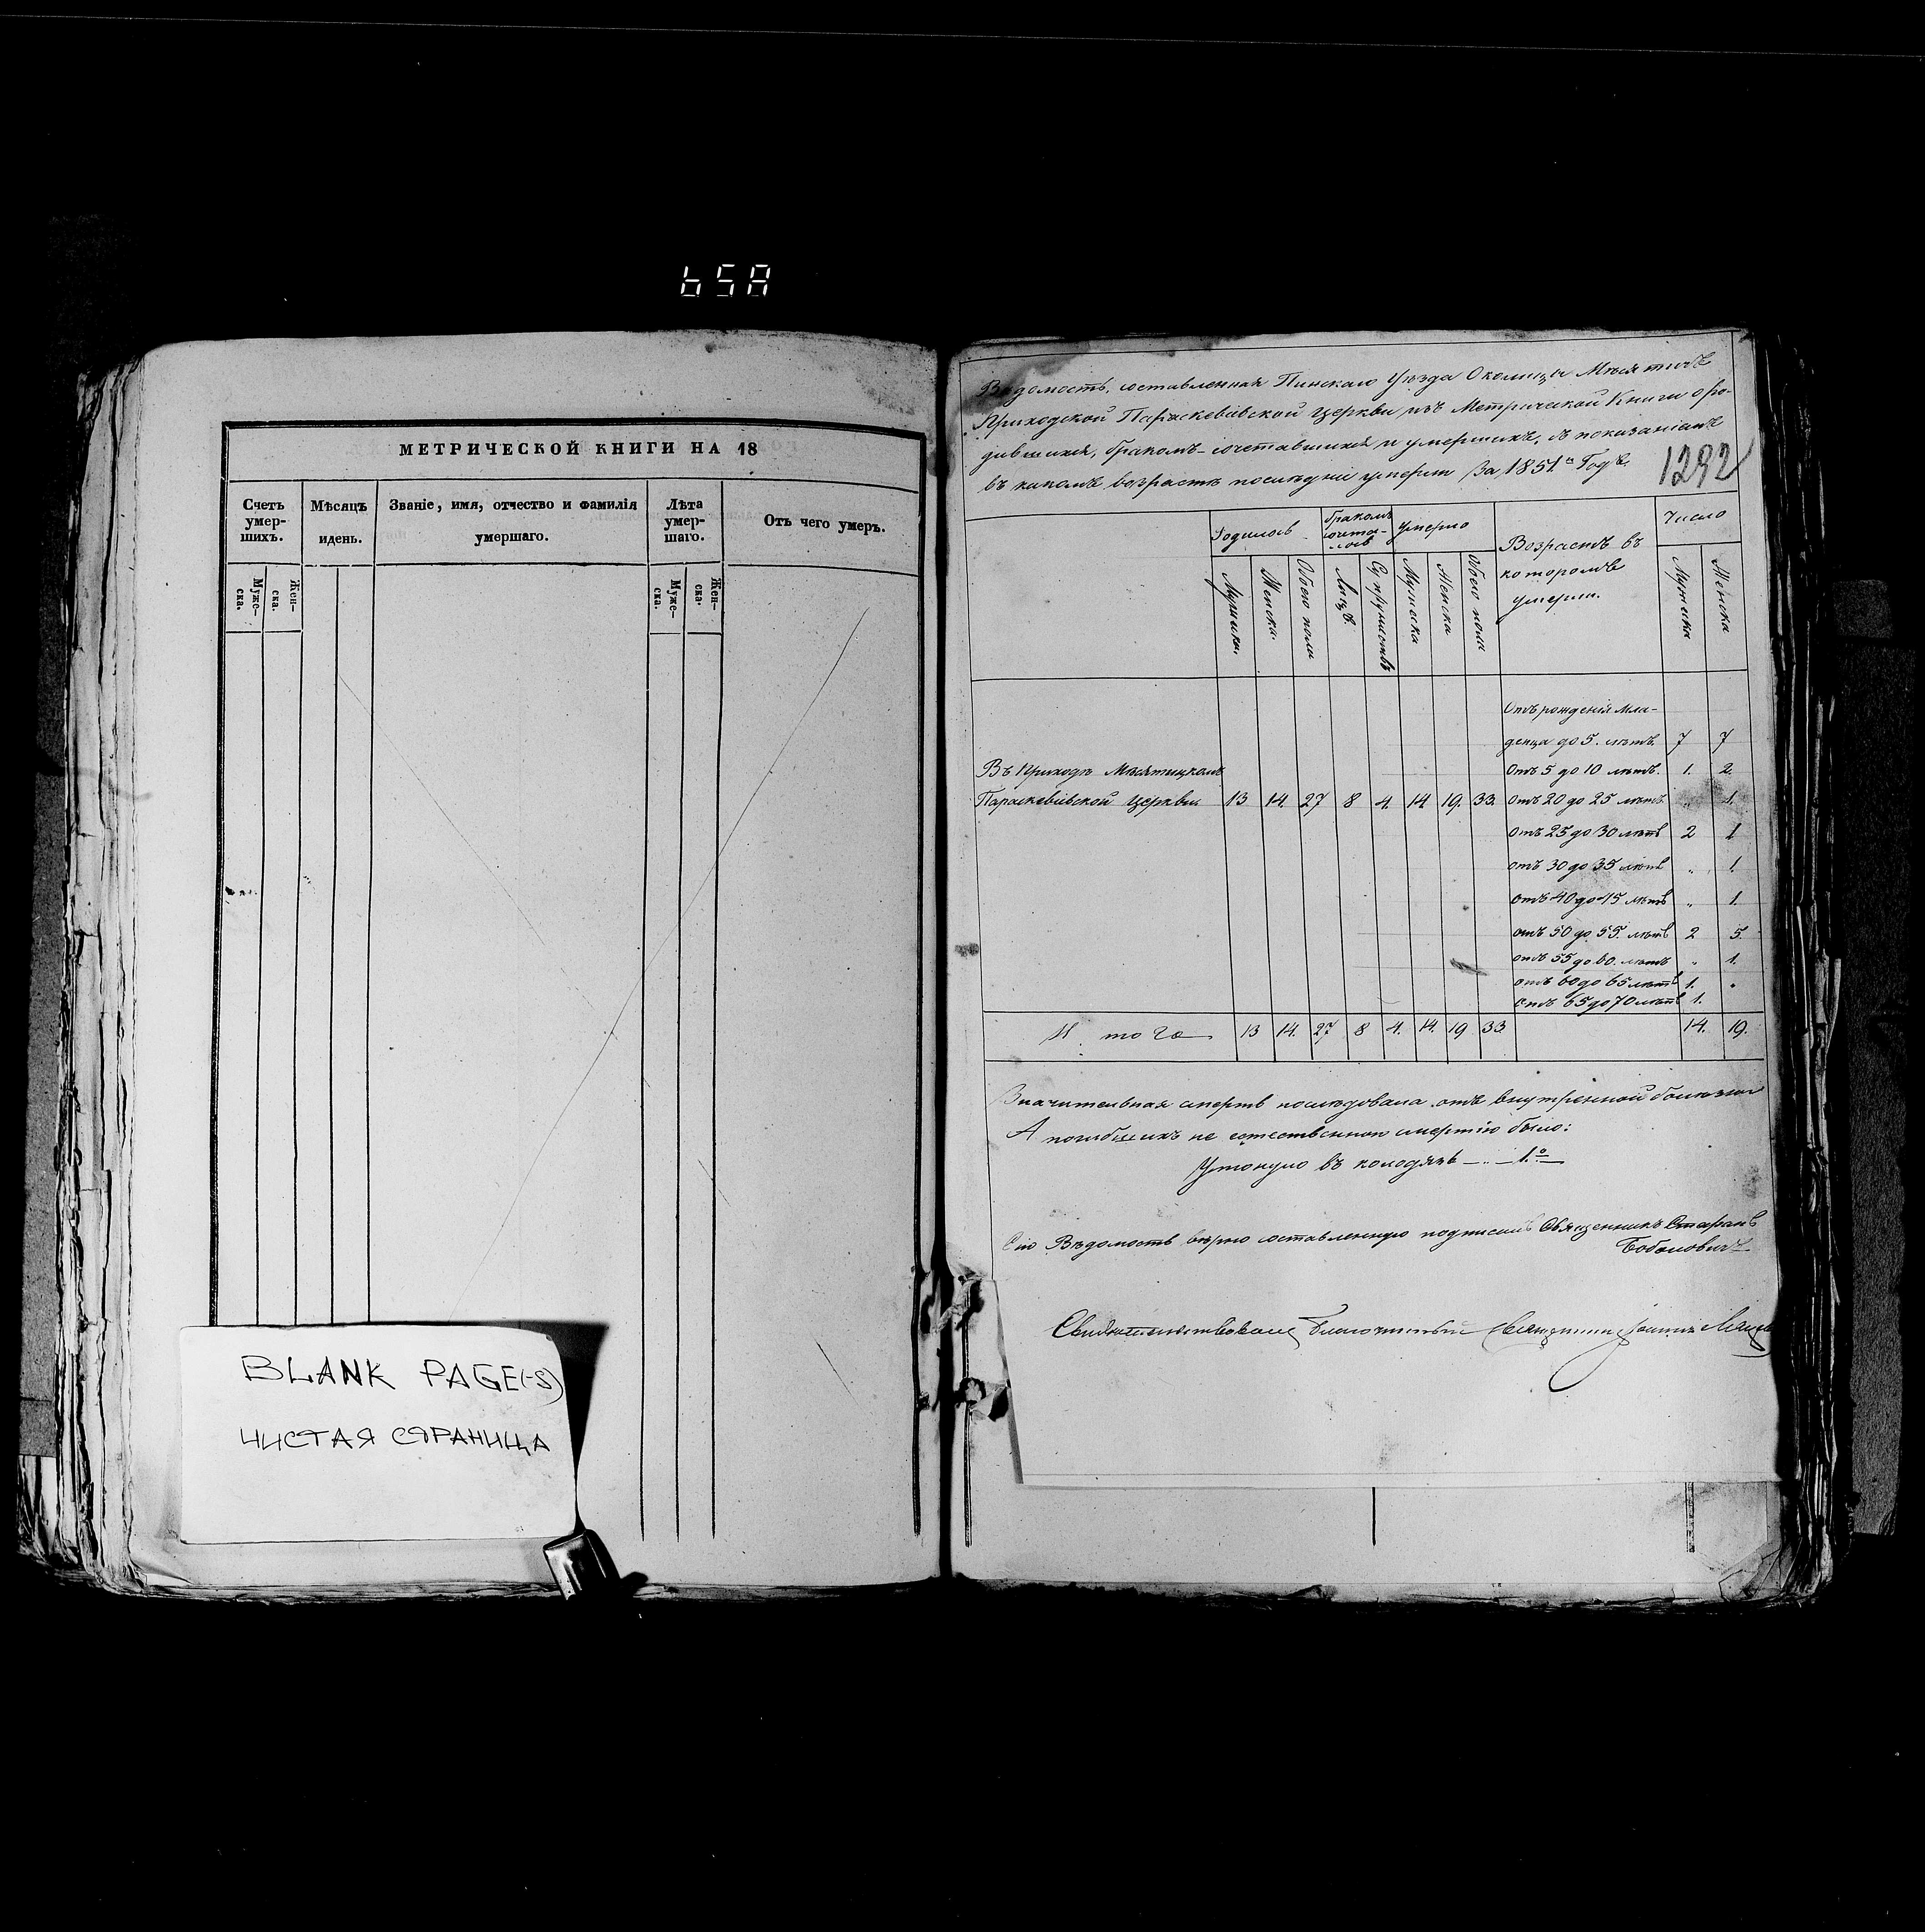 658
МЕТРИЧЕСКОЙ КНИГИ НА 18
Счетъ умер-шихъ.
Мѣсяцъ идень.
Званіе, имя, отчество и фамилія умершаго.
Лѣта умер-шаго.
Отъ чего умеръ.
Муже-ска.
Жен-ска.
Муже-ска.
Жен-ска.
BLANK PAGE(-S)
ЧИСТАЯ СТРАНИЦА
Вѣдомость, составленная Пинскаго Уѣзда Околицы Мѣсятичъ
Приходской Параскевіевской Церкви изъ Метрической Книги о ро-
дившихся, бракомъ-сочетавшихся и умершихъ, съ показаніемъ
въ какомъ возрастѣ послѣдніи умерли За 1851й Годъ.
1292
Родилось
бракомъ сочета-лось
Умерло
Возрастъ въ которомъ умерли.
Число
Мужска.
Женска.
Обоего пола
Лицъ.
Супружествъ
Мужеска
Женска
Обоего пола
Мужеска
Женска
Отъ рожденія мла-
денца до 5. лѣтъ. 7 7
Въ Приходѣ Мѣсятицкомъ
Отъ 5 до 10 лѣтъ. 1. 2.
Параскевіевской Церкви 13 14. 27 8 4. 14 19. 33. Отъ 20 до 25 лѣтъ " 1.
Отъ 25 до 30 лѣтъ 2 1
отъ 30 до 35 лѣтъ " 1.
отъ 40 до 45 лѣтъ " 1.
отъ 50 до 55. лѣтъ 2 5.
отъ 55 до 60. лѣтъ " 1.
отъ 60 до 65 лѣтъ 1. "
Отъ 65 до 70 лѣтъ 1.
Итого 13 14. 27 8 4. 14. 19 33 14. 19.
Значительная смерть послѣдовала отъ внутренной болѣзни
А погибшихъ не естественною смертію было:
Утонуло въ колодязѣ — " — 1.о —
Сію Вѣдомость вѣрно составленную подписалъ Священникъ
Свидѣтельствовалъ Благочинный Священникъ Іоаннъ